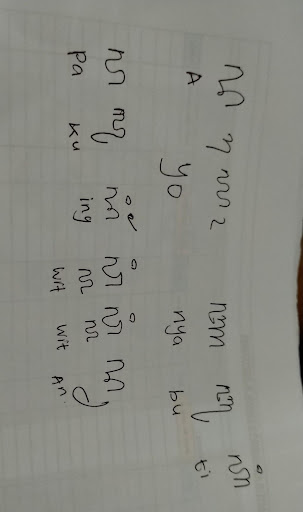 ꦲ ꦪꦺꦴ ꦚ ꦧꦸ ꦠꦶ
A yo nya bu ti
ꦥ ꦏꦸ ꦲꦶꦁ
pa ku ing wit wit An